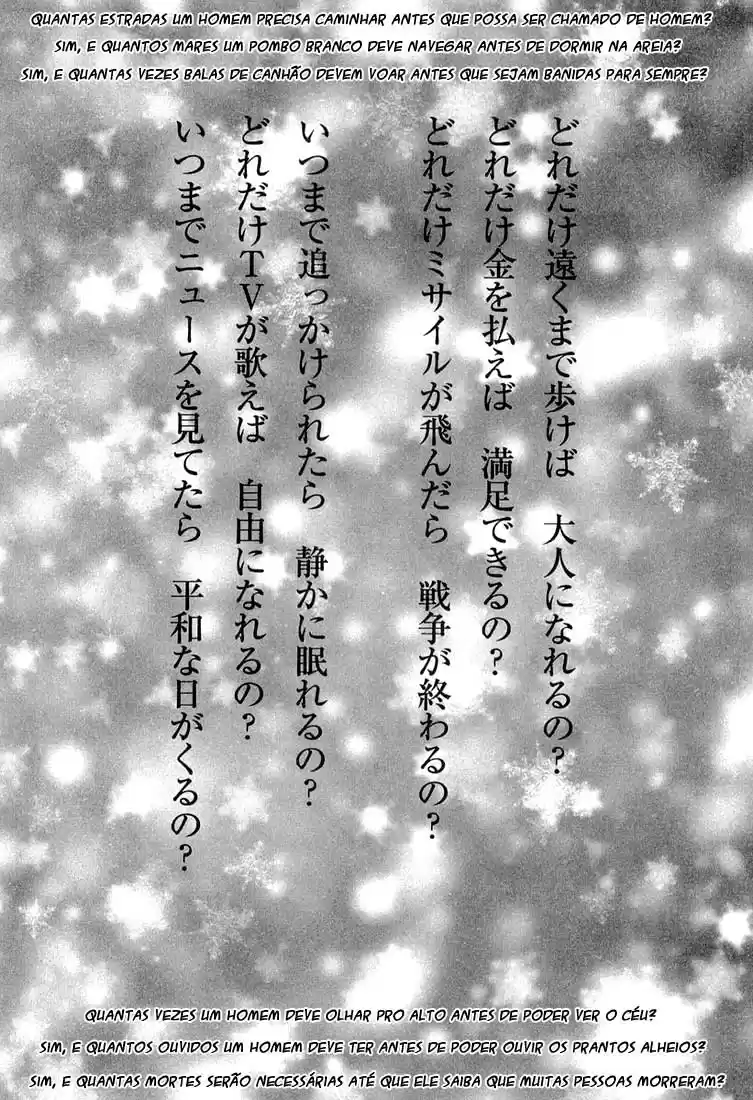 QUANTAS ESTRADAS UM HOMEM PRECISA CAMINHAR ANTES QUE POSSA SER CHAMADO DE HOMEM?
SIM, E QUANTOS MARES UM POMBO BRANCO DEVE NAVEGAR ANTES DE DORMIR NA AREIA?
SIM, E QUANTAS VEZES BALAS DE CANHÃO DEVEM VOAR ANTES QUE SEJAM BANIDAS PARA SEMPRE?
どれだけ遠くまで歩けば　大人になれるの？
どれだけ金を払えば　満足できるの？
どれだけミサイルが飛んだら　戦争が終わるの？
いつまで追っかけられたら　静かに眠れるの？
どれだけTVが歌えば　自由になれるの？
いつまでニュースを見てたら　平和な日がくるの？
QUANTAS VEZES UM HOMEM DEVE OLHAR PRO ALTO ANTES DE PODER VER O CÉU?
SIM, E QUANTOS OUVIDOS UM HOMEM DEVE TER ANTES DE PODER OUVIR OS PRANTOS ALHEIOS?
SIM, E QUANTAS MORTES SERÃO NECESSÁRIAS ATÉ QUE ELE SAIBA QUE MUITAS PESSOAS MORRERAM?